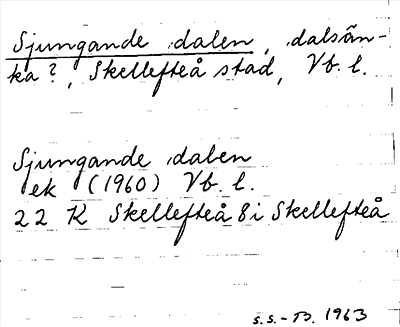 Sjungande dalen, dalsän-
ka?, Skellefteå stad, Vb. l.
Sjungande dalen
ek (1960) Vb. l.
22 K Skellefteå 8i Skellefteå
s.s.-B. 1963